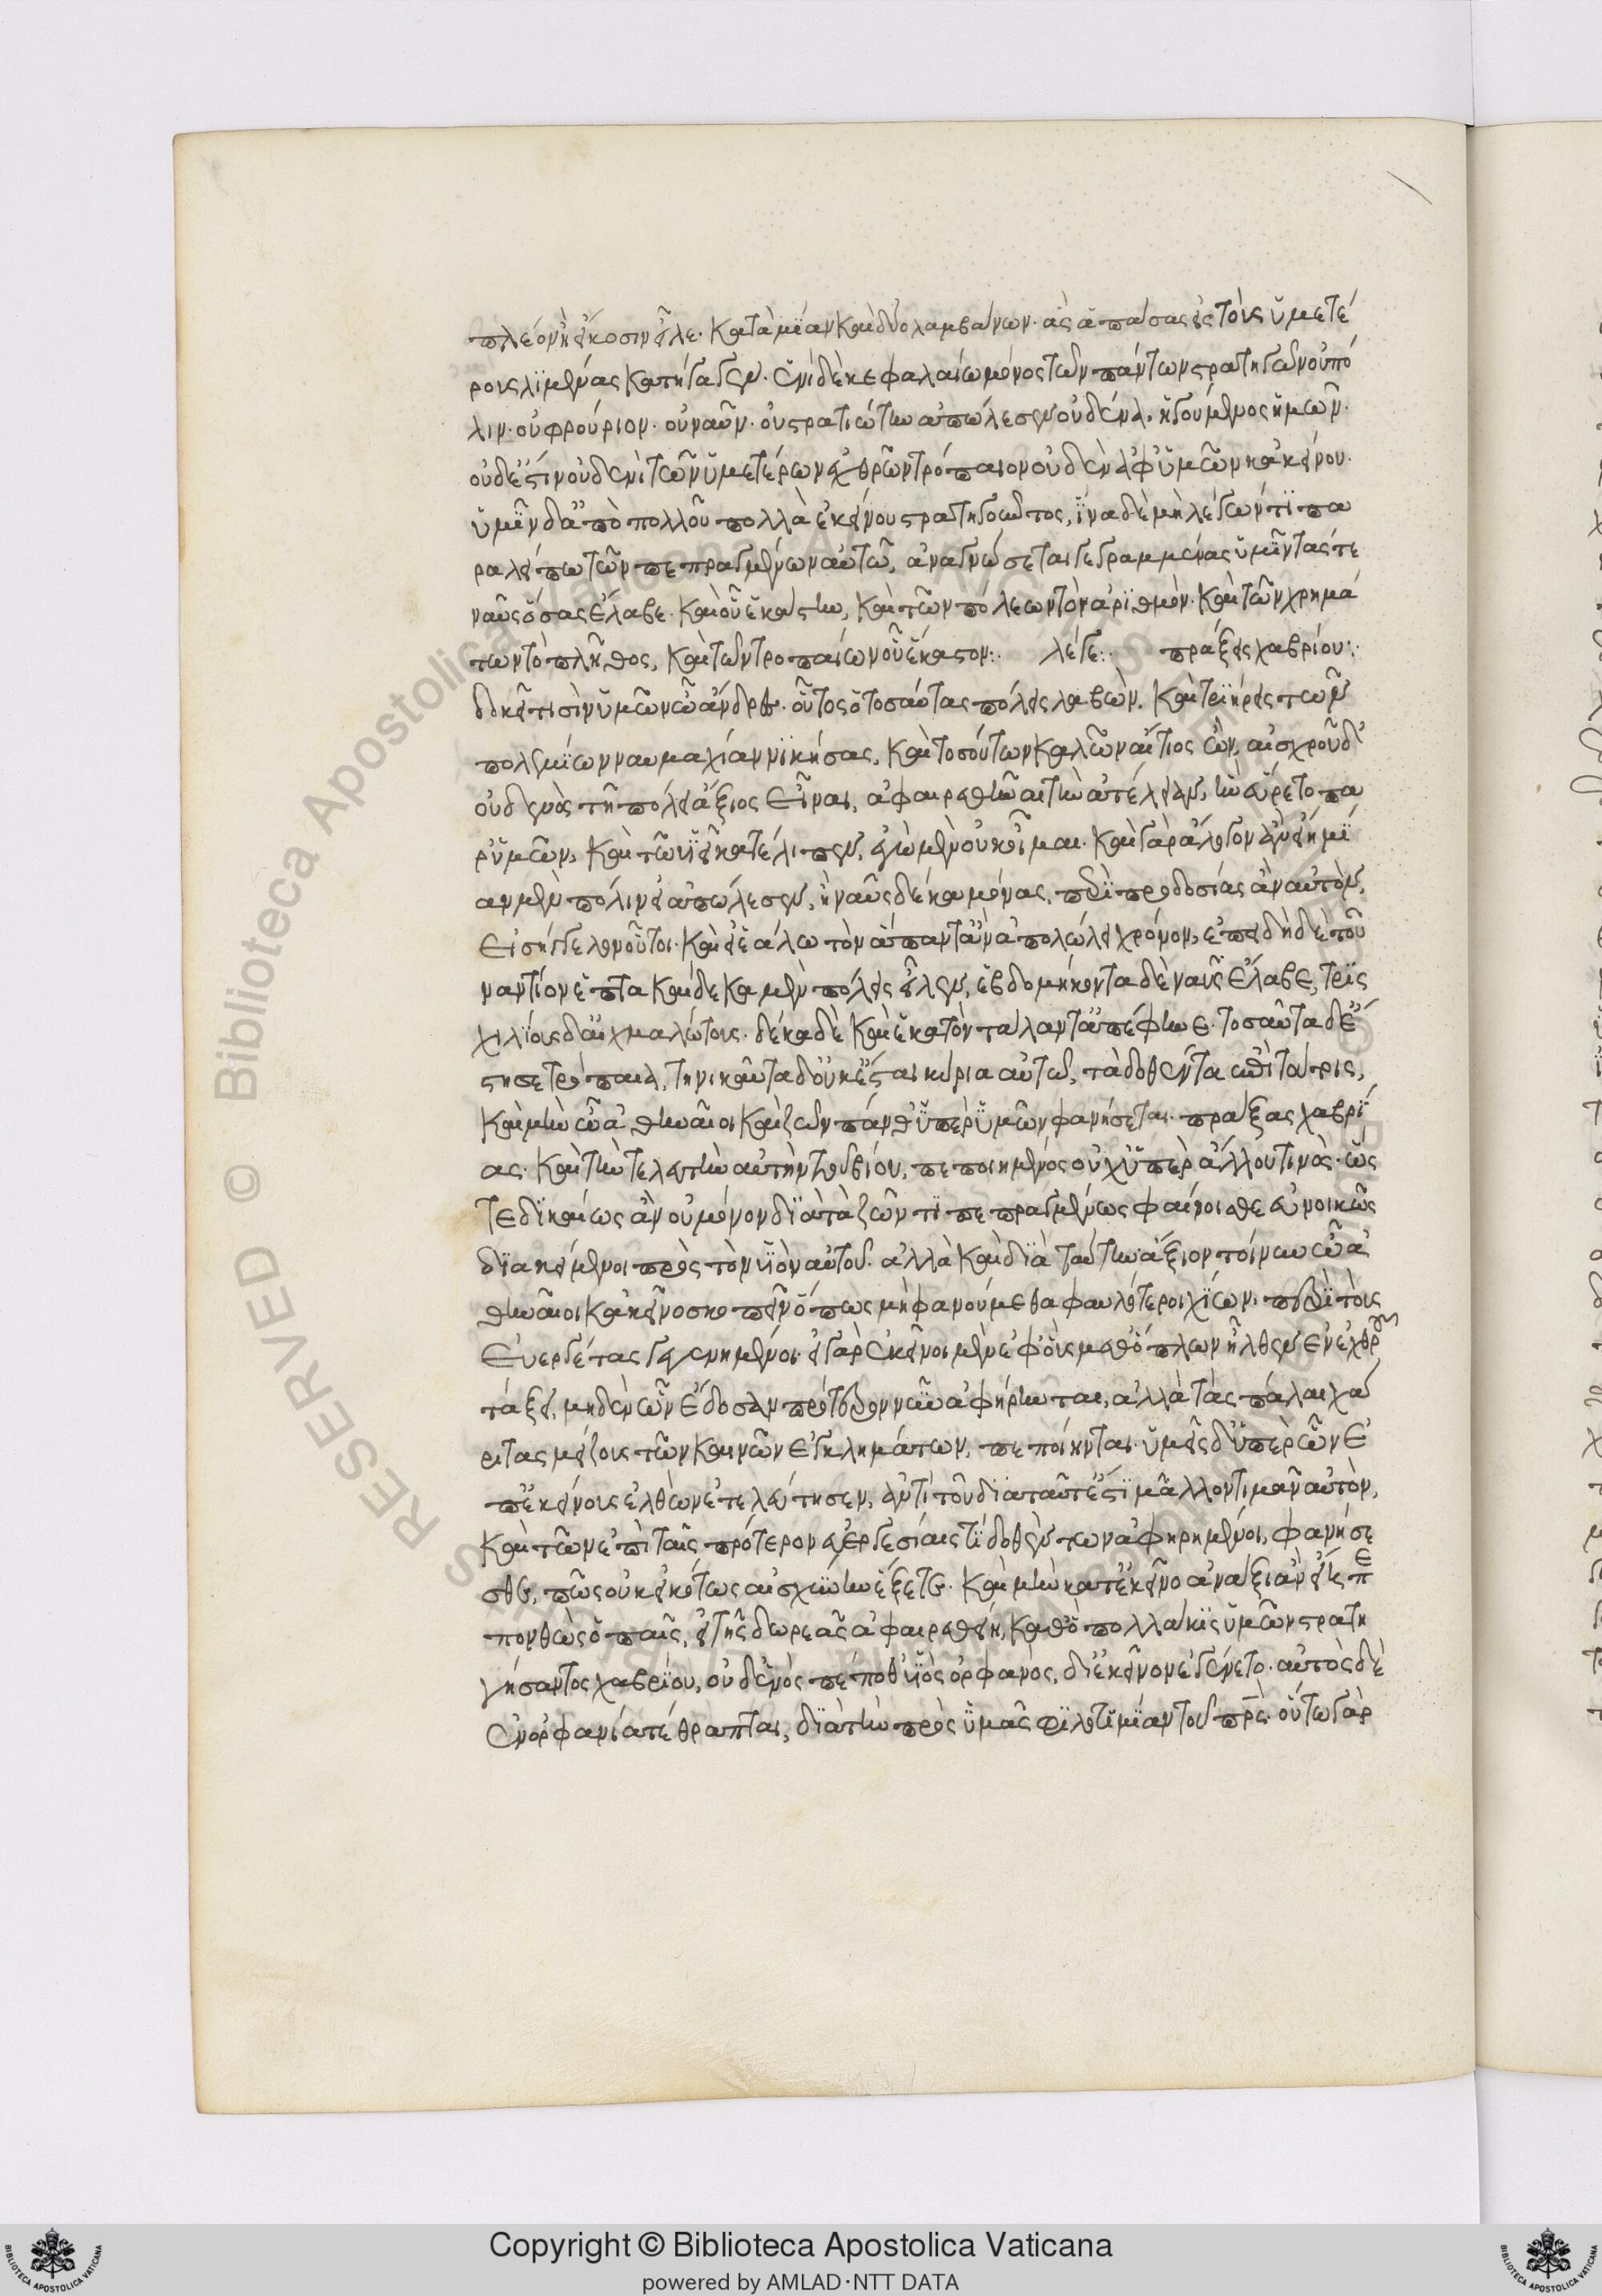 πλέον ἢ εἴκοσιν εἷλε· κατὰ μίαν καὶ δύο λαμβάνων· ἃς ἁπάσας εἰς τοὺς ὑμετέ
ρους λιμένας κατήγαγεν. ἑνὶ δὲ κεφαλαίω μόνος τῶν πάντων στρατηγῶν οὐ πό
λιν· οὐ φρούριον· οὐ ναῦν· οὐ στρατιώτην ἀπώλεσεν οὐδένα, ἡγούμενος ἡμῶν·
οὐδ' ἔστιν οὐδενὶ τῶν ὑμετέρων ἐχθρῶν τρόπαιον οὐδὲν ἀφ' ὑμῶν κἀκείνου·
ὑμῖν δ' ἀπὸ πολλοῦ πολλὰ ἐκείνου στρατηγοῦντος, ἵνα δὲ μὴ λέγων τι πα
ραλείπω τῶν πεπραγμένων αὐτῶ, ἀναγνώσεται γεγραμμένας ὑμῖν τάς τε
ναῦς ὅσας ἔλαβε· καὶ οὗ ἑκάστην, καὶ τῶν πόλεων τὸν ἀριθμόν· καὶ τῶν χρημά
των τὸ πλῆθος, καὶ τῶν τροπαίων οὗ ἕκαστον:. λέγε:. πράξεις χαβρίου:.
δοκεῖ τισὶν ὑμῶν ὦ ἄνδρες· οὗτος ὁ τοσαύτας πόλεις λαβὼν, καὶ τριήρεις τῶν
πολεμίων ναυμαχίαν νικήσας, καὶ τοσούτων καλῶν αἴτιος ὢν, αἰσχροῦ δ'
οὐδενὸς τῆ πόλει ἄξιος εἶναι, ἀφαιρεθῆναι τὴν ἀτέλειαν, ἣν εὕρετο πα
ρ' ὑμῶν, καὶ τῶ υἱεῖ κατέλιπεν, ἐγὼ μὲν οὐκ οἶμαι. καὶ γὰρ ἄλογον ἂν εἴη μί
αν μὲν πόλιν εἰ ἀπώλεσεν, ἢ ναῦς δέκα μόνας, περὶ προδοσίας ἂν αὐτὸν,
εἰσήγγελλον οὗτοι· καὶ εἰ ἑάλω τὸν ἅπαντ' ἂν ἀπολώλει χρόνον, ἐπειδὴ δὲ τοῦ
ναντίον ἑπτακαίδεκα μὲν πόλεις εἷλεν, ἑβδομήκοντα δὲ ναῦς ἔλαβε, τρισ
χιλίους δ' αἰχμαλώτους· δέκα δὲ καὶ ἑκατὸν τάλαντ' ἀπέφηνε· τοσαῦτα δ' ἔ
στησε τρόπαια, τηνικαῦτα δ' οὐκ ἔσται κύρια αὐτῶ, τὰ δοθέντα ἐπὶ τούτοις,
καὶ μὴν ὦ ἀθηναῖοι καὶ ζῶν πάνθ' ὑπὲρ ὑμῶν φανήσεται· πράξας χαβρί
ας· καὶ τὴν τελευτὴν αὐτὴν τοῦ βίου, πεποιημένος οὐχ ὑπὲρ ἄλλου τινὸς· ὥσ
τε δικαίως ἂν οὐ μόνον διὰ τὰ ζῶντι πεπραγμένως φαίνοισθε εὐνοικῶς
διακείμενοι πρὸς τὸν υἱὸν αὐτοῦ· ἀλλὰ καὶ διὰ ταύτην ἄξιον τοίνυν ὦ ἀ
θηναῖοι κἀκεῖνο σκοπεῖν ὅπως μὴ φανούμεθα φαυλότεροι χίων· περὶ τοὺς
εὐεργέτας γεγενημένοι· εἰ γὰρ ἐκεῖνοι μὲν ἐφ' οὓς μεθ' ὅπλων ἦλθεν ἐν ἐχθροῦ
τάξει, μηδὲν ὧν ἔδοσαν πρότερον νῦν ἀφήρηνται, ἀλλὰ τὰς πάλαι χά
ριτας μείζους τῶν καινῶν ἐγκλημάτων, πεποίηνται· ὑμεῖς δ' ὑπὲρ ὧν ἐ
π' ἐκείνους ἐλθὼν ἐτελεύτησεν, ἀντὶ τοῦ διὰ ταῦτ' ἔτι μᾶλλον τιμᾶν αὐτὸν,
καὶ τῶν ἐπὶ ταῖς πρότερον εὐεργεσίαις τι δοθέντων ἀφῃρημένοι, φανήσε
σθε, πῶς οὐκ εἰκότως αἰσχύνην ἕξετε. καὶ μὴν κατ' ἐκεῖνο ἀνάξι' ἂν εἴη πε
πονθὼς ὁ παῖς, εἰ τῆς δωρεᾶς ἀφαιρεθείη, καθ' ὃ πολλάκις ὑμῶν στρατη
γήσαντος χαβρίου, οὐδενὸς πέποθ' υἱὸς ὀρφανὸς, δι' ἐκεῖνον ἐγένετο· αὐτὸς δὲ
ἐν ὀρφανία τέθραπται, διὰ τὴν πρὸς ὑμᾶς φιλοτιμίαν τοῦ πρς· οὕτω γὰρ